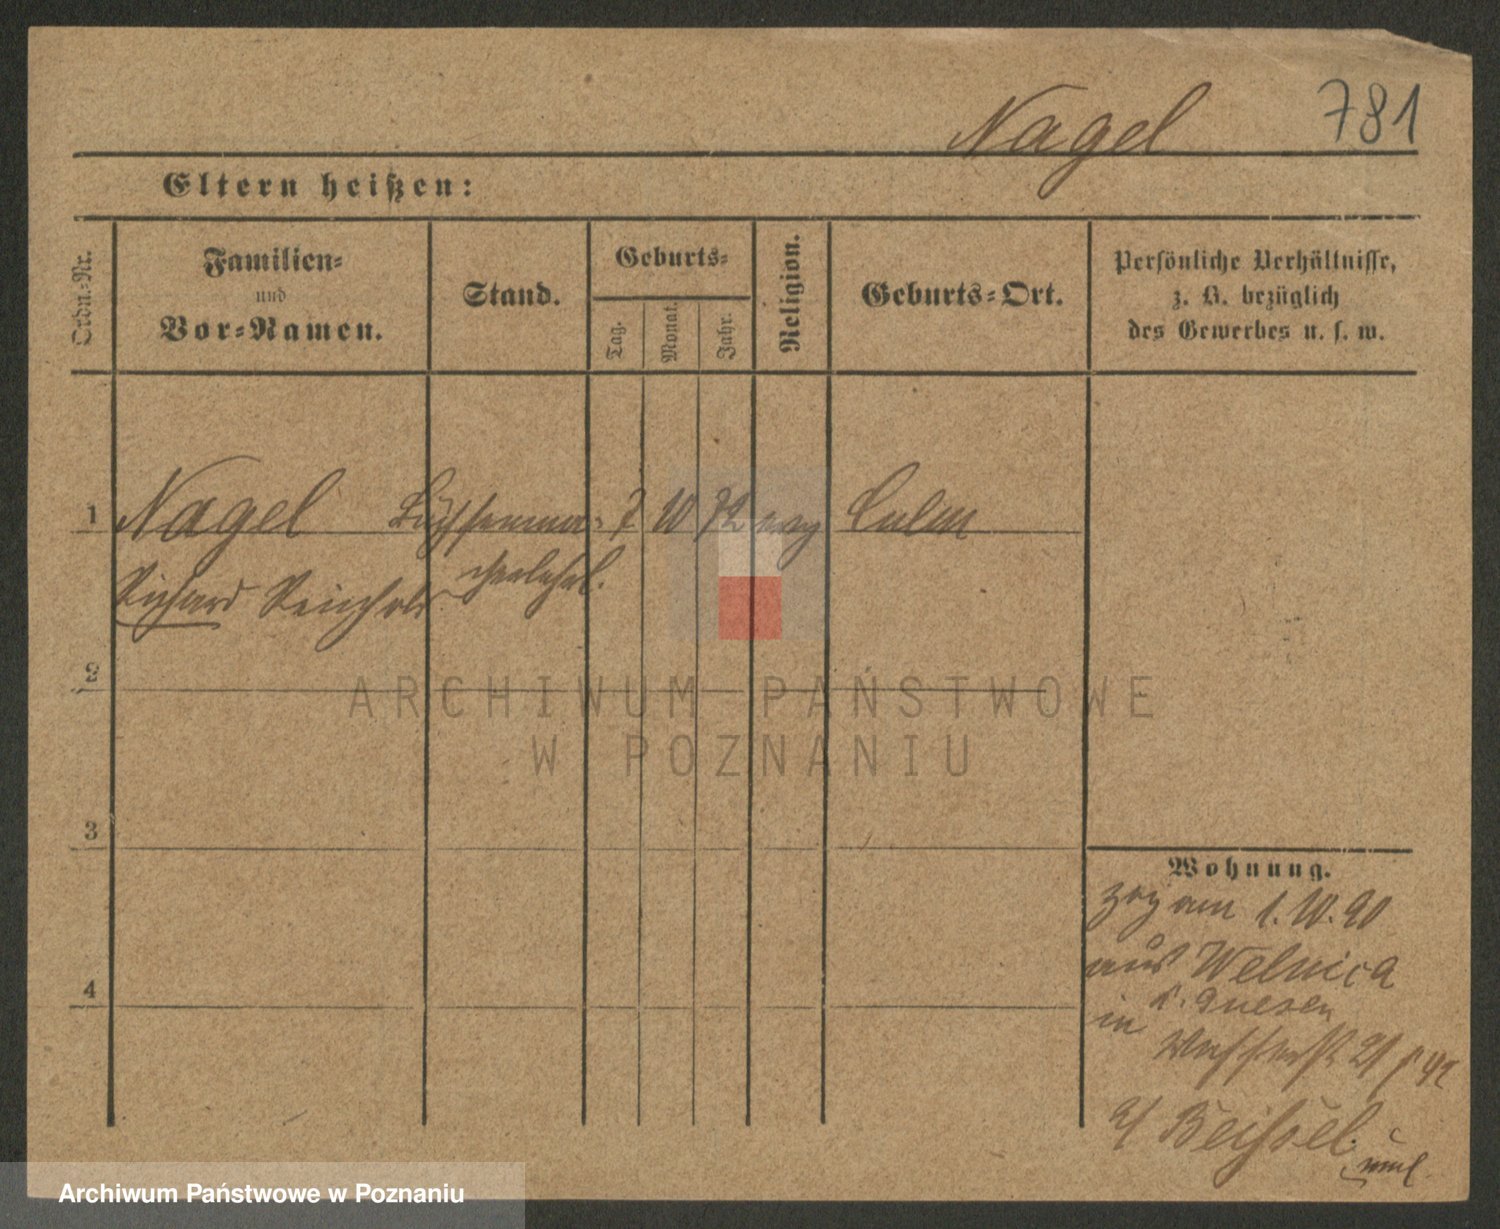 Nagel 781
Eltern heißen:
Ordn.-Nr.
Familien-
und
Vor-Namen.
Stand.
Geburts-
Tag.
Monat.
Jahr.
Religion.
Geburts-Ort.
Persönliche Verhältnisse,
z. B. bezüglich
des Gewerbes u. s. w.
1 Nagel Büchsenma- 7 10 72 evg Culm
Richard Reinhold cherlehrl.
2
3
4
Wohnung.
zog am 1. 10. 90
aus Welnica
b. Gnesen
in
Wasserstr 21
b/ Beissel
ARCHIWUM PAŃSTWOWE
W POZNANIU
Archiwum Państwowe w Poznaniu